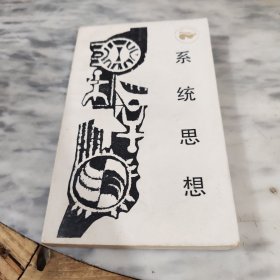 系统思想